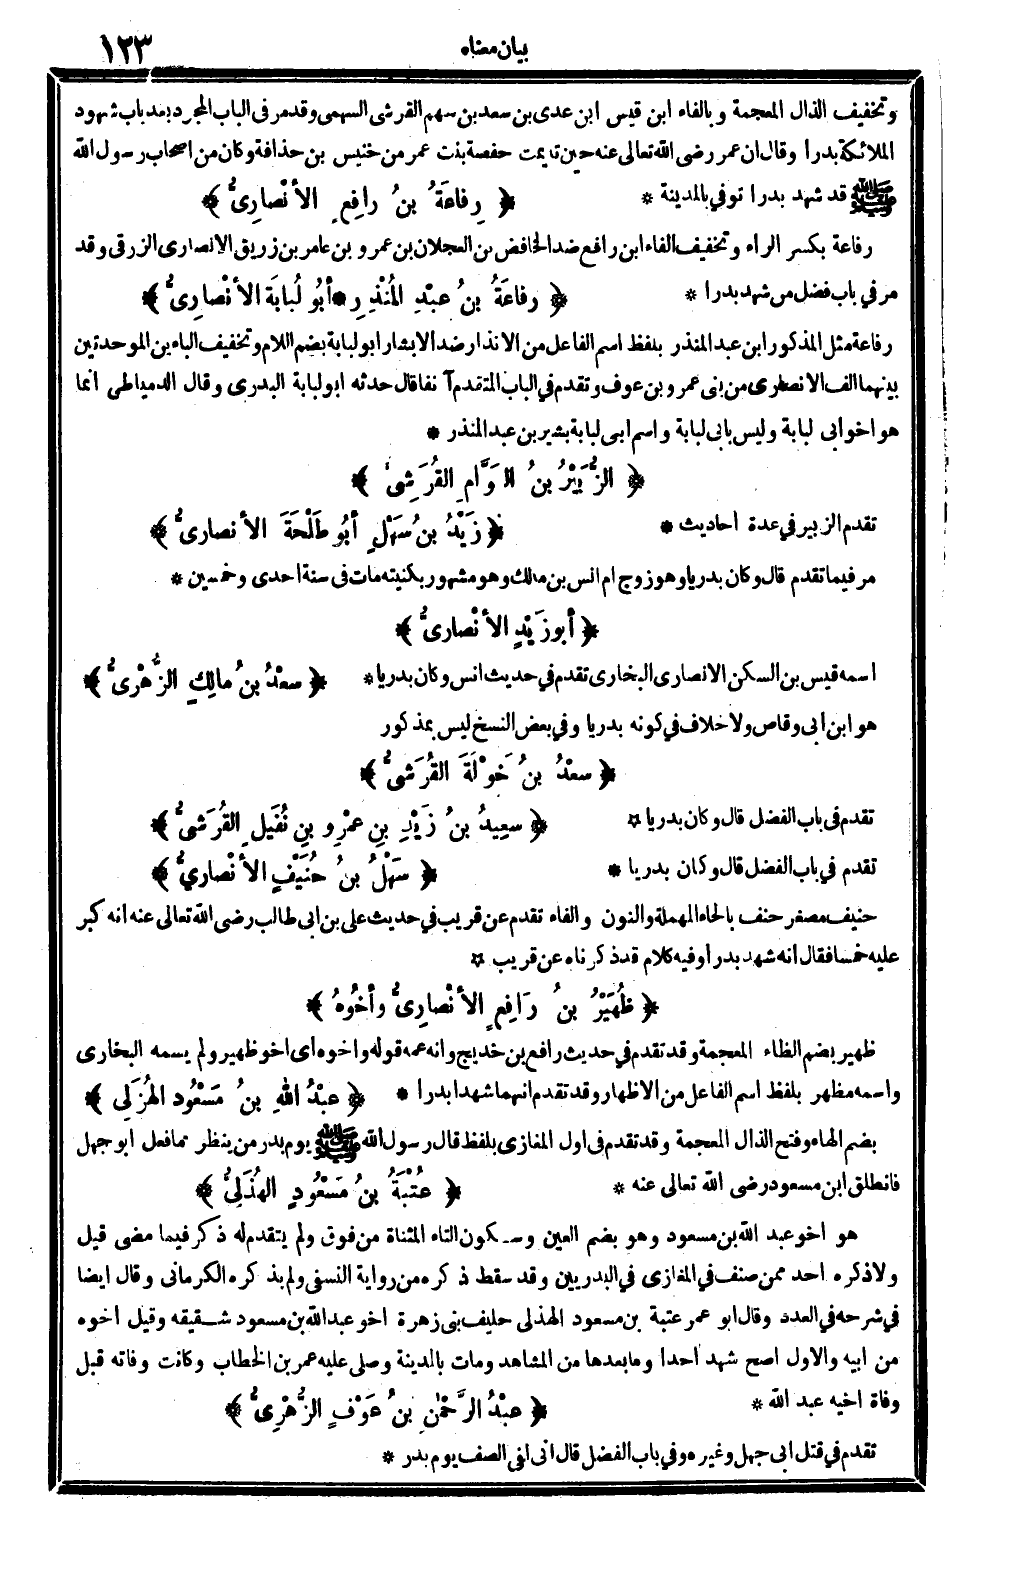 ١٢٣
بيان معناه
وتخفيف الذال المعجمة وبالفاء ابن قيس ابن عدى بن سعد بن سهم القرشى السهمى وقد مر فى الباب المجرد بعد باب شهود
الملائكة بدرا وقال ان عمر رضى الله تعالى عنه حين تأيمت حفصة بنت عمر من خنيس بن حذافة وكان من اصحاب رسول الله
ﷺ قد شهد بدرا توفي بالمدينة * ﴿ رِفاعَةُ بنُ رافِعٍ الأنْصارِىُّ ﴾
رفاعة بكسر الراء وتخفيف الفاء ابن رافع ضد الخافض بن العجلان بن عمرو بن عامر بن زريق الانصارى الزرقى وقد
مر في باب فضل من شهد بدرا * ﴿ رفاعَةُ بنُ عبْدِ المُنْذِرِ * أبُو لُبابَة الأنْصارِىُّ ﴾
رفاعة مثل المذكور ابن عبد المنذر بلفظ اسم الفاعل من الانذار ضد الابشار ابو لبابة بضم اللام وتخفيف الباء بن الموحدتين
بينهما الف الانصارى من بنى عمرو بن عوف وتقدم في الباب المتقدم آنفا قال حدثه ابو لبابة البدرى وقال الدمياطى انما
هو اخو ابى لبابة وليس بابى لبابة واسم ابى لبابة بشير بن عبد المنذر *
﴿ الزُّبَيْرُ بنُ العَوَّامِ القُرَشِىُّ ﴾
تقدم الزبير في عدة احاديث * ﴿ زَيْدُ بنُ سَهْلٍ أبُو طَلْحَةَ الأنصارىُّ ﴾
مر فيما تقدم قال وكان بدريا وهو زوج ام انس بن مالك وهو مشهور بكنيته مات فى سنة احدى وخمسين *
﴿ أبو زَيْدٍ الأنْصارىُّ ﴾
اسمه قيس بن السكن الانصارى البخارى تقدم في حديث انس وكان بدريا * ﴿ سعْدُ بنُ مالِكٍ الزُّهْرِىُّ ﴾
هو ابن ابى وقاص ولا خلاف في كونه بدريا وفي بعض النسخ ليس بمذكور
﴿ سعْدُ بنُ خَوْلَةَ القُرَشىُّ ﴾
تقدم فى باب الفضل قال وكان بدريا * ﴿ سعِيدُ بنُ زَيْدِ بنِ عمْرِو بنِ نُفَيلٍ القُرَشىُّ ﴾
تقدم في باب الفضل قال وكان بدريا * ﴿ سَهْلُ بنُ حُنَيْفٍ الأنْصارىُّ ﴾
حنيف مصغر حنف بالحاء المهملة والنون والفاء تقدم عن قريب في حديث على بن ابى طالب رضى الله تعالى عنه انه كبر
عليه خمسا فقال انه شهد بدرا وفيه كلام قد ذكرناه عن قريب *
﴿ ظُهَيْرُ بنُ رَافِعٍ الأنْصارِىُّ وأخُوهُ ﴾
ظهير بضم الظاء المعجمة وقد تقدم في حديث رافع بن خديج وانه عمه قوله واخوه اى اخو ظهير ولم يسمه البخارى
واسمه مظهر بلفظ اسم الفاعل من الاظهار وقد تقدم انهما شهدا بدرا * ﴿ عبْدُ اللهِ بنُ مَسْعُود الهُزَلى ﴾
بضم الهاء وفتح الذال المعجمة وقد تقدم فى اول المغازى بلفظ قال رسول الله ﷺ يوم بدر من ينظر ما فعل ابو جهل
فانطلق ابن مسعود رضى الله تعالى عنه * ﴿ عُتْبَةُ بنُ مَسْعُودٍ الهُذَلىُّ ﴾
هو اخو عبد الله بن مسعود وهو بضم العين وسكون التاء المثناة من فوق ولم يتقدم له ذكر فيما مضى قيل
ولا ذكره احد ممن صنف في المغازى في البدريين وقد سقط ذكره من رواية النسفى ولم يذكره الكرمانى وقال ايضا
في شرحه في العدد وقال ابو عمر عتبة بن مسعود الهذلى حليف بنى زهرة اخو عبد الله بن مسعود شقيقه وقيل اخوه
من ابيه والاول اصح شهد احدا وما بعدها من المشاهد ومات بالمدينة وصلى عليه عمر بن الخطاب وكانت وفاته قبل
وفاة اخيه عبد الله * ﴿ عبْدُ الرَّحْمٰنِ بنُ عَوْفٍ الزُّهْرِىُّ ﴾
تقدم في قتل ابى جهل وغيره وفي باب الفضل قال انى لفى الصف يوم بدر *